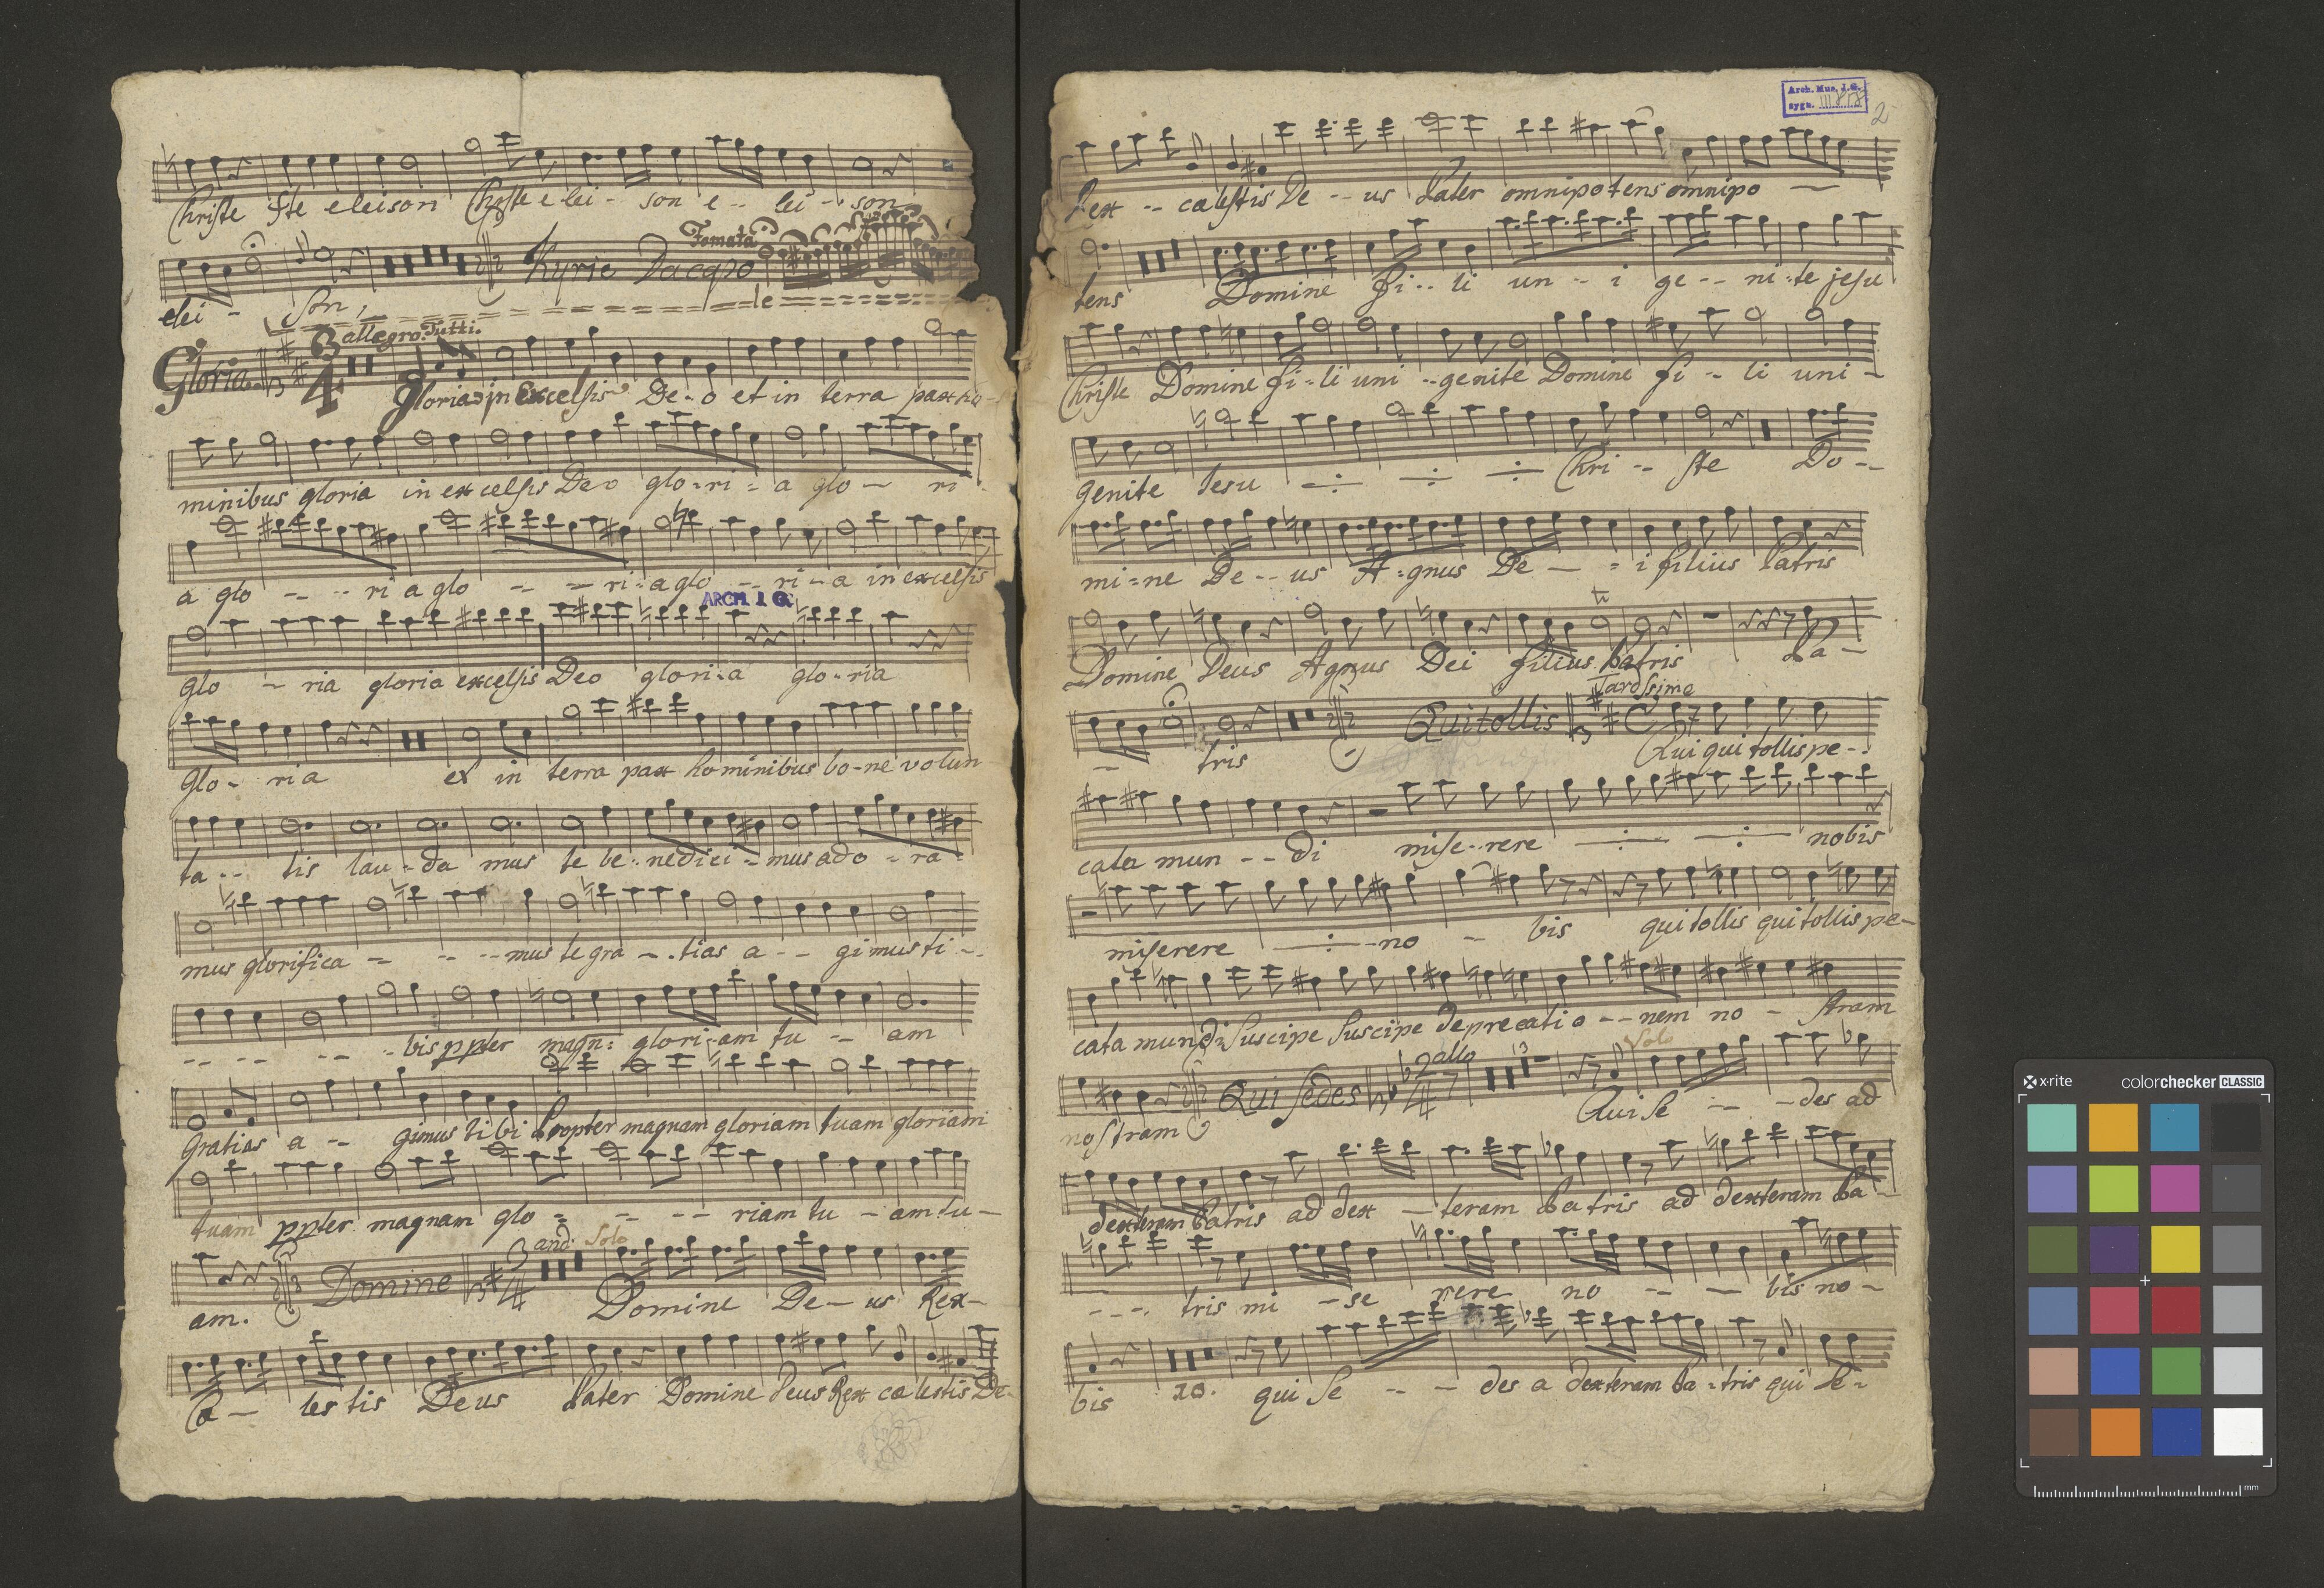 Christe ste eleison Christe e lei - son e -- lei - son
Fomata
Kyrie Dacapo
elei - son,
le
allegro. Tutti.
Gloria 3 4
Gloria in Excelsis De - o et in terra pax ho -
minibus gloria in excelsis Deo glo - ri - a glo - ri -
a glo -- -- ri a glo -- -- ri - a glo -- ri - a in excelsis
ARCH I G
glo - - ria gloria excelsis Deo glori - a glo - ria
glo - ria et in terra pax hominibus bo - ne volun
ta -- tis lau - da mus te be - nedici - mus ado - ra -
mus glorifica -- -- -- mus te gra -- tias a -- gimus ti --
-- -- -- -- bis ppter magn: glori - am tu -- am
gratias a -- gimus ti bi Propter magnam gloriam tuam gloriam
tuam ppter magnam glo -- -- -- riam tu - am tu -
and: Solo
am. Domine 3 4 Domine De - us Rex -
Cæ - les tis Deus Pater Domine Deus Rex cælestis De -
Arch. Mus. J.G.
sygn. III
2
Rex -- cælestis De -- us Pater omnipotens omnipo -
tens Domine fi -- li un - i ge -- ni - te jesu
Christe Domine fi - li uni - genite Domine fi -- li uni -
genite Iesu Chri -- ste Do --
mi - ne De -- us A - gnus De - - i filius Patris
tr
Domine Deus Agnus Dei filius Patris Pa -
Tardssime
- tris Qui tollis C Qui qui tollis pe -
cata mun -- di mise -- rere nobis
miserere no - bis qui tollis qui tollis pe -
cata mundi Suscipe Suscipe deprecatio -- nem no - stram
allo 13 Solo
nostram Qui sedes 2 4 Qui se -- - des ad
dexteram Patris ad dex - teram Patris ad dexteram Pa -
--- tris mi - se rere no -- - bis no -
bis 10. qui se -- - des a dexteram Pa - tris qui se -
x-rite colorchecker CLASSIC
mm